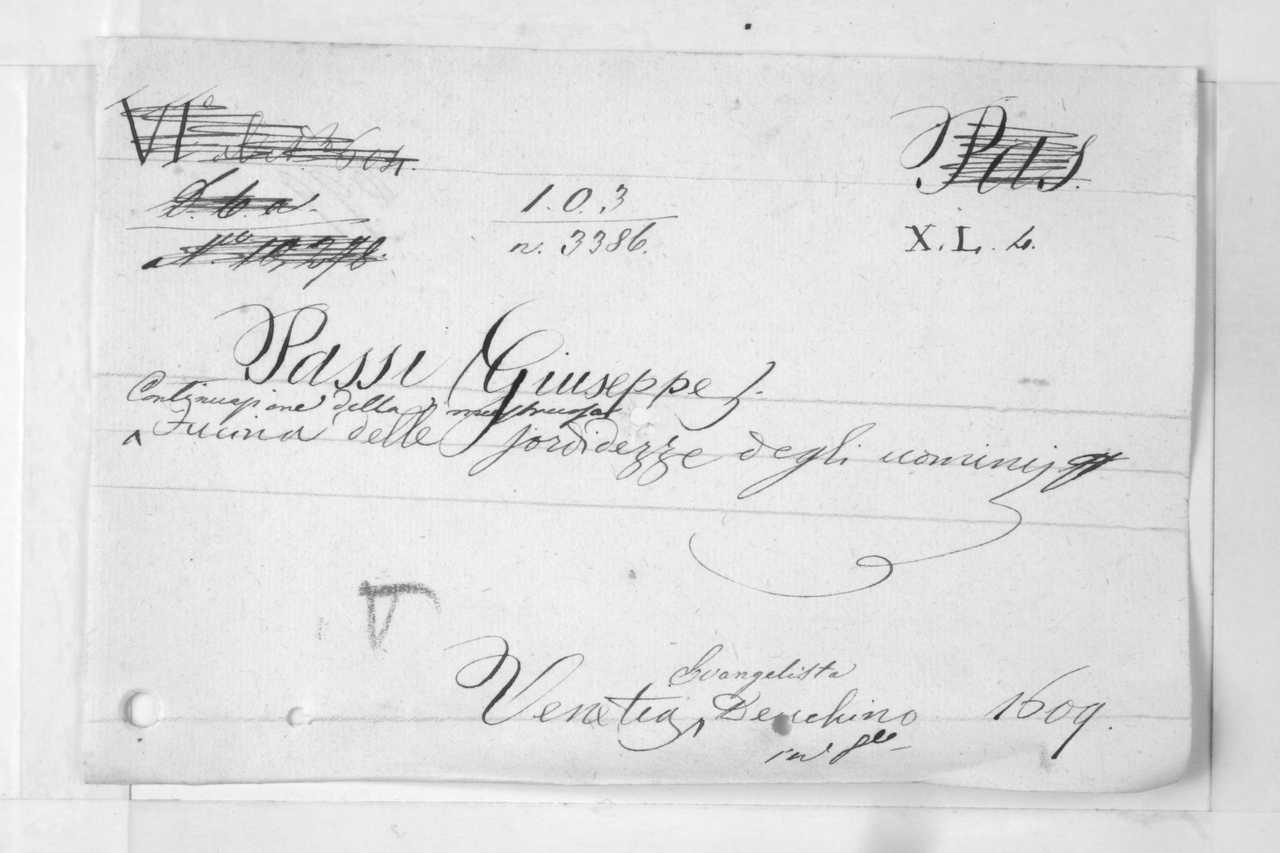 Pas.
1.0.3
n. 3386.
X.L.4.
Passi Giuseppe
Continuazione della mostruosa
Fucina delle sordidezze degli uomini
Evangelista
Venetia, Deuchino 1609.
in 8vo